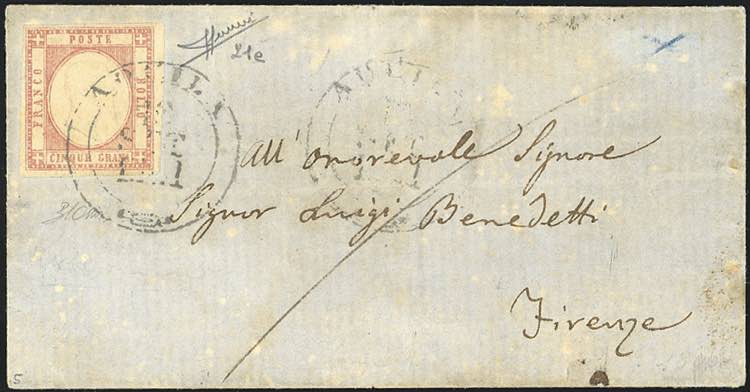 POSTE
FRANCO
BOLLO
CINQUE GRANA
21e
AQUILA
AQUILA
All' Onorevole Signore
Signor Luigi Benedetti
Firenze
5